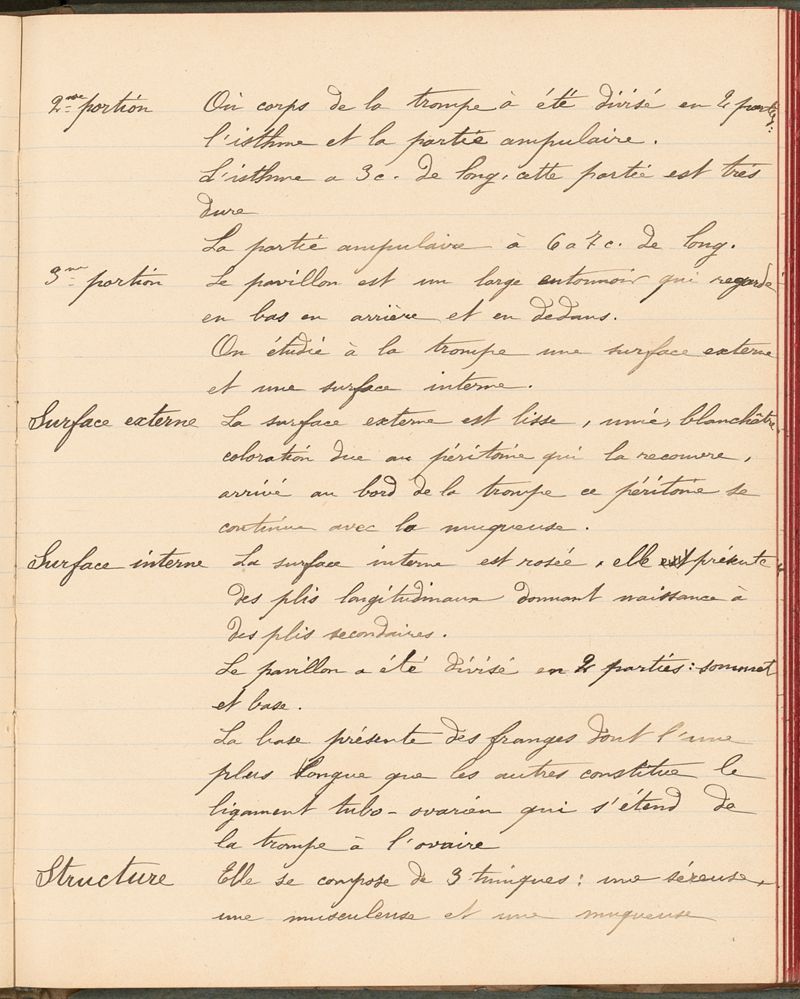 2me portion Ou corps de la trompe à été divisé en 2 parties:
l'isthme et la partie ampulaire.
L'isthme a 3c. de long, cette partie est très
dure
La partie ampulaire à 6 a 7 c. de long.
3me portion Le pavillon est un large entonnoir qui regarde
en bas en arrière et en dedans.
On étudié à la trompe une surface externe
et une surface interne.
Surface externe La surface externe est lisse, unie, blanchâtre,
coloration due au péritoine qui la recouvre,
arrivé au bord de la trompe ce péritoine se
continue avec la muqueuse.
Surface interne La surface interne est rosée, elle présente
des plis longitudinaux donnant naissance à
des plis secondaires.
Le pavillon a été divisé en 2 parties: sommet
et base.
La base présente des franges dont l'une
plus longue que les autres constitue le
ligament tubo-ovarien qui s'étend de
la trompe à l'ovaire
Structure Elle se compose de 3 tuniques: une séreuse,
une musculeuse et une muqueuse